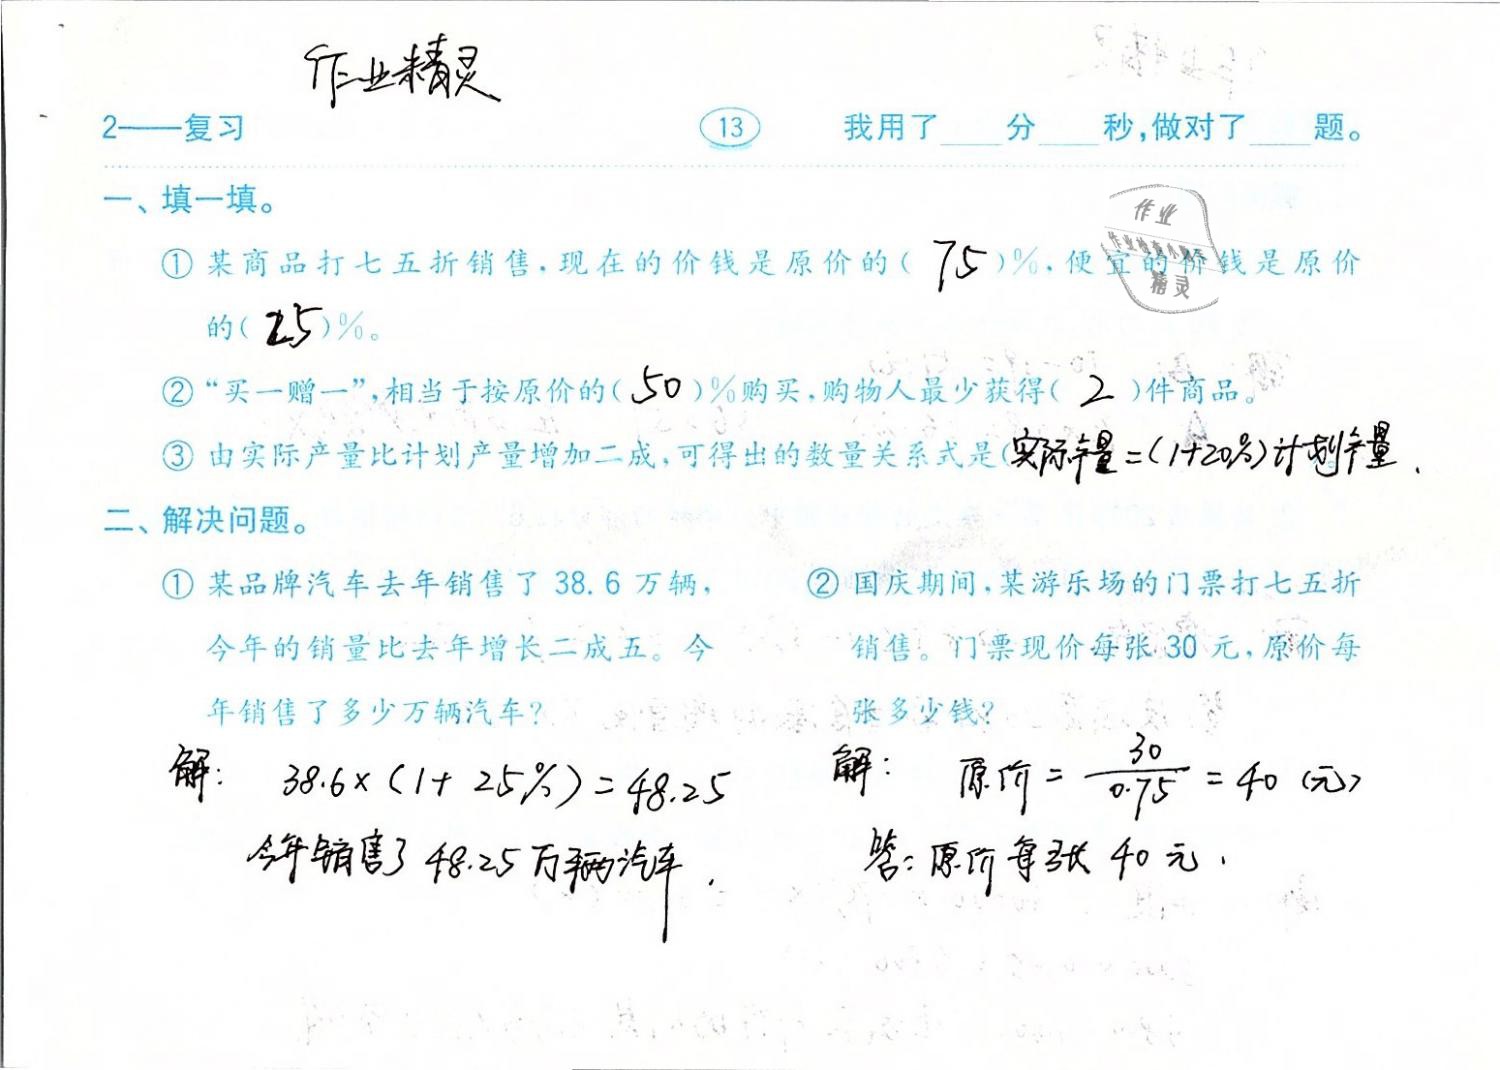 作业精灵
2——复习 13 我用了____分____秒,做对了____题。
一、填一填。
① 某商品打七五折销售,现在的价钱是原价的(75)%,便宜的价钱是原价
的(25)%。
②“买一赠一”,相当于按原价的(50)%购买,购物人最少获得(2)件商品。
③ 由实际产量比计划产量增加二成,可得出的数量关系式是(实际产量=(1+20%)计划产量.
二、解决问题。
① 某品牌汽车去年销售了 38.6 万辆,
今年的销量比去年增长二成五。今
年销售了多少万辆汽车?
解: 38.6×(1+25%)=48.25
今年销售了48.25万辆汽车.
② 国庆期间,某游乐场的门票打七五折
销售。门票现价每张 30 元,原价每
张多少钱?
解: 原价=30/0.75=40(元)
答:原价每张40元.
作业
作业检查小助手
精灵